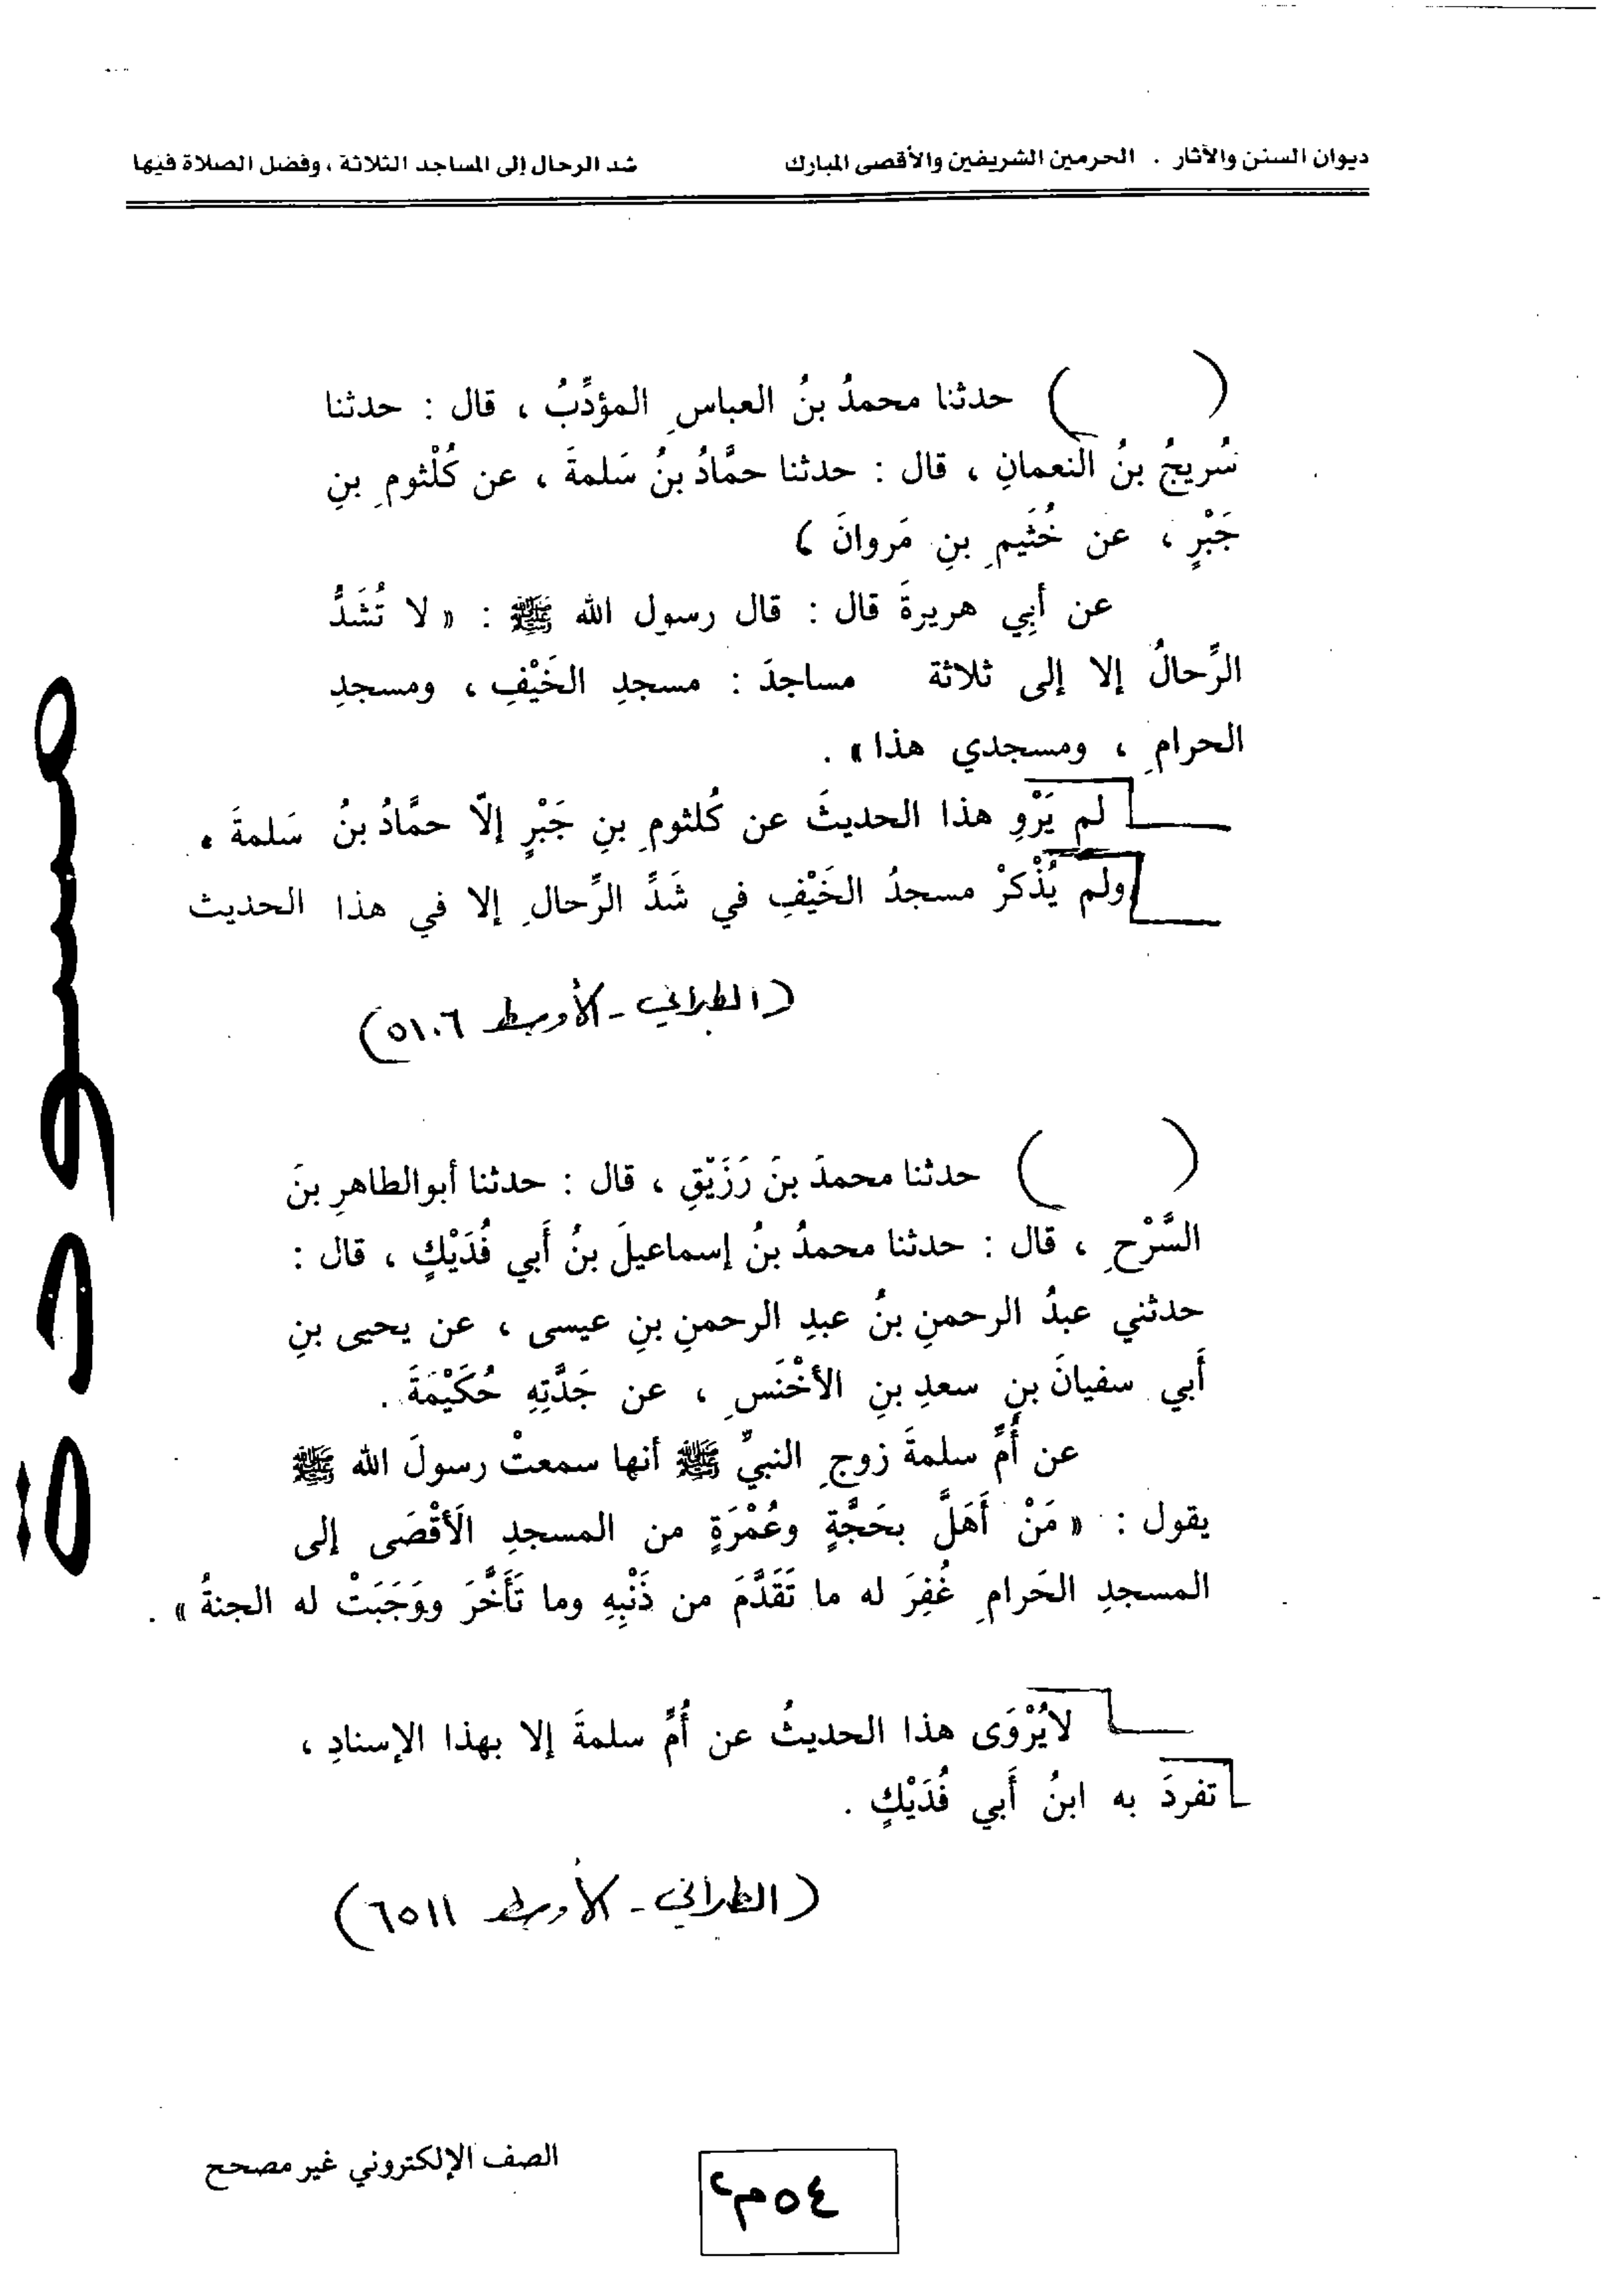 ديوان السنن والآثار . الحرمين الشريفين والأقصى المبارك شد الرحال إلى المساجد الثلاثة ، وفضل الصلاة فيها
( ) حدثنا محمدُ بنُ العباسِ المؤدِّبُ ، قال : حدثنا
سُريجُ بنُ النعمانِ ، قال : حدثنا حمَّادُ بنُ سَلمةَ ، عن كُلْثومِ بنِ
جَبْرٍ ، عن خُثَيمِ بنِ مَروانَ ،
عن أبِي هريرةَ قال : قال رسول الله ﷺ : « لا تُشَدُّ
الرِّحالُ إلا إلى ثلاثة مساجدَ : مسجدِ الخَيْفِ ، ومسجدِ
الحرامِ ، ومسجدي هذا » .
لم يَرْوِ هذا الحديثَ عن كُلثومِ بنِ جَبْرٍ إلّا حمَّادُ بنُ سَلمةَ .
ولم يُذْكرْ مسجدُ الخَيْفِ في شَدِّ الرِّحالِ إلا في هذا الحديث
(الطبراني - الأوسط ٥١٠٦)
( ) حدثنا محمدَ بنَ رَزَيْقِ ، قال : حدثنا أبوالطاهرِ بنَ
السَّرْحِ ، قال : حدثنا محمدُ بنُ إسماعيلَ بنُ أَبي فُدَيْكٍ ، قال :
حدثني عبدُ الرحمنِ بنُ عبدِ الرحمنِ بنِ عيسى ، عن يحيى بنِ
أَبي سفيانَ بنِ سعدِ بنِ الأخْنَسِ ، عن جَدَّتِهِ حُكَيْمَةَ .
عن أُمِّ سلمةَ زوجِ النبيِّ ﷺ أنها سمعتْ رسولَ الله ﷺ
يقول : « مَنْ أَهَلَّ بحَجَّةٍ وعُمْرَةٍ من المسجدِ الَأقْصَى إلى
المسجدِ الحَرامِ غُفِرَ له ما تَقَدَّمَ من ذَنْبِهِ وما تَأَخَّرَ ووَجَبَتْ له الجنةُ » .
لايُرْوَى هذا الحديثُ عن أُمِّ سلمةَ إلا بهذا الإسنادِ ،
تفردَ به ابنُ أَبي فُدَيْكٍ .
(الطبراني - الأوسط ٦٥١١)
مسودة
الصف الإلكتروني غير مصحح